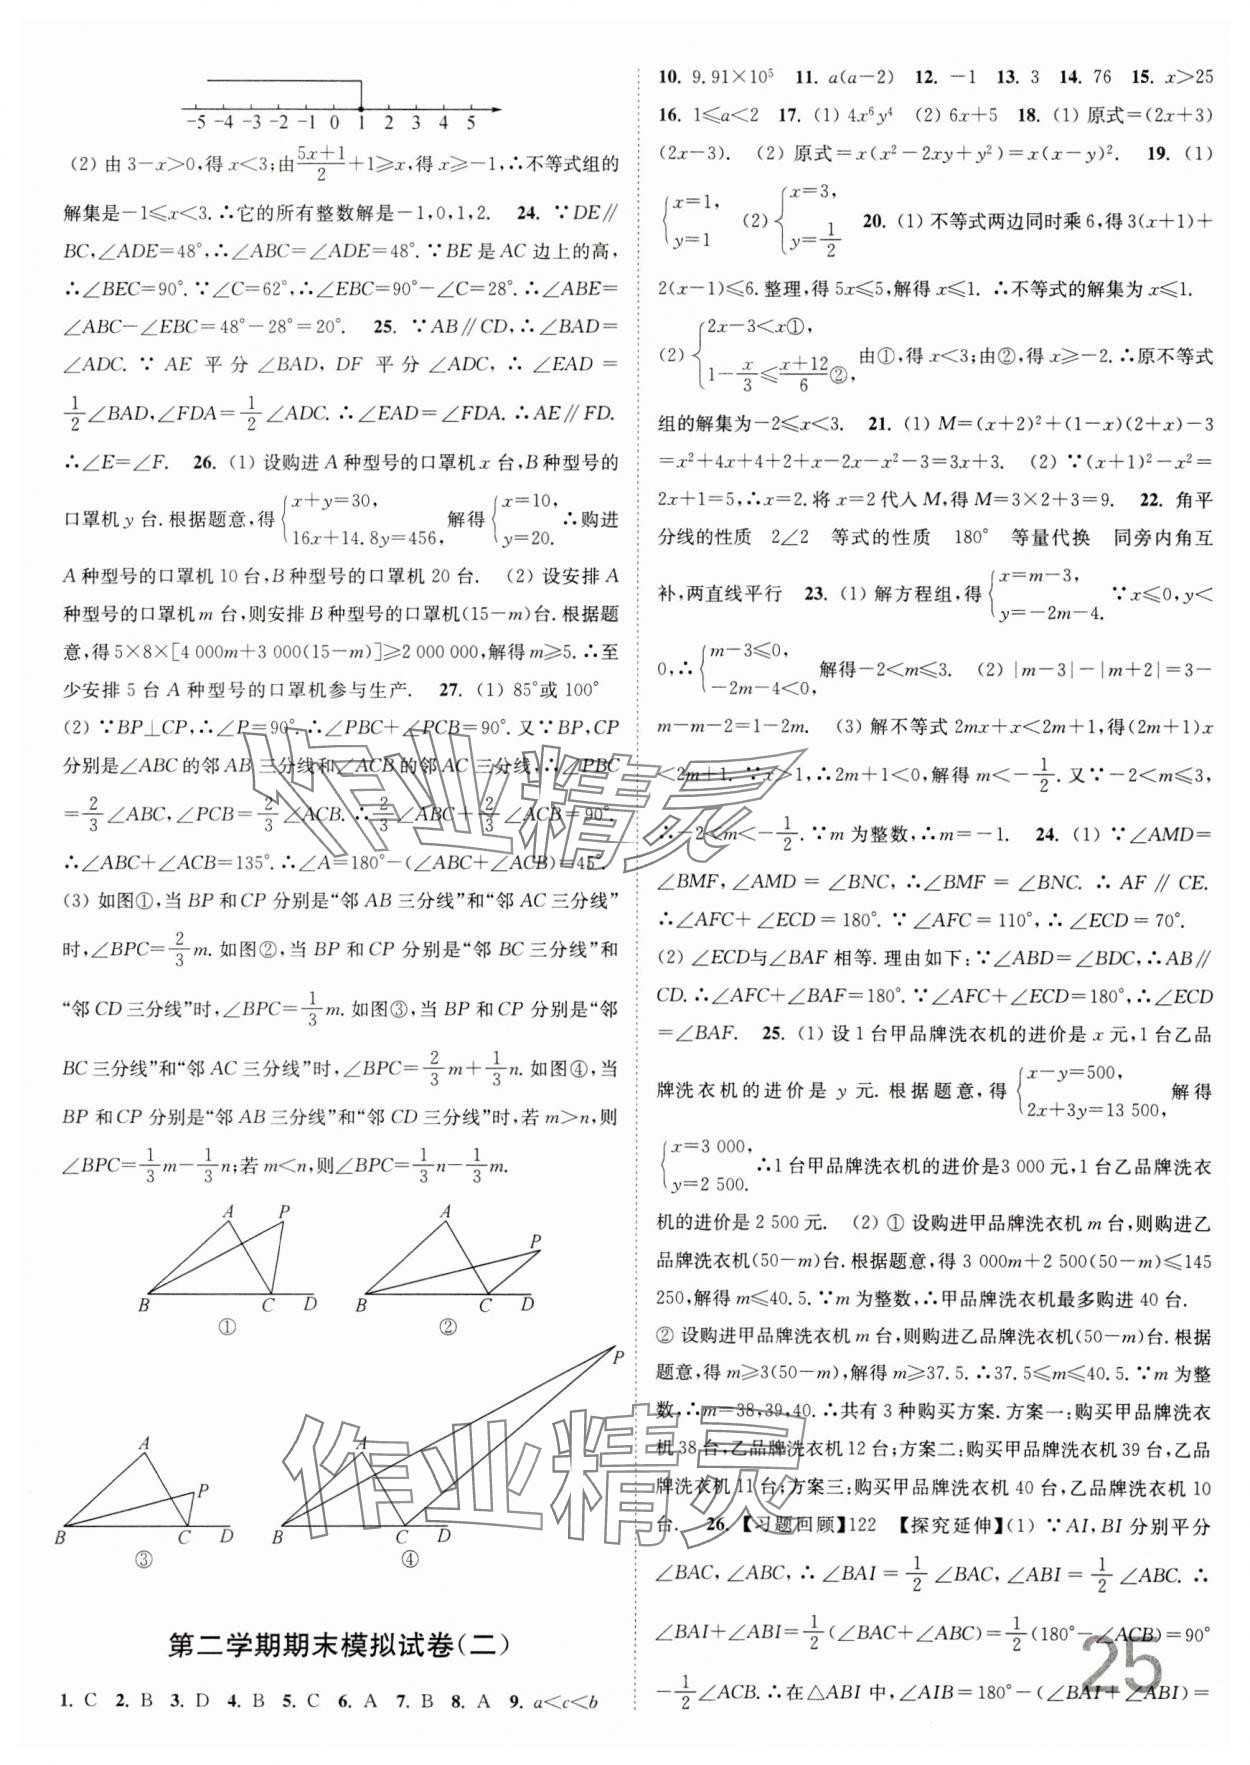 -5 -4 -3 -2 -1 0 1 2 3 4 5
(2) 由 3-x>0,得 x<3;由(5x+1)/2+1≥x,得 x≥-1,∴不等式组的
解集是-1≤x<3.∴它的所有整数解是-1,0,1,2. 24. ∵DE∥
BC,∠ADE=48°,∴∠ABC=∠ADE=48°.∵BE是AC边上的高,
∴∠BEC=90°.∵∠C=62°,∴∠EBC=90°-∠C=28°.∴∠ABE=
∠ABC-∠EBC=48°-28°=20°. 25. ∵AB∥CD,∴∠BAD=
∠ADC. ∵ AE 平分 ∠BAD, DF 平分 ∠ADC, ∴ ∠EAD =
1/2∠BAD,∠FDA=1/2∠ADC.∴∠EAD=∠FDA.∴AE∥FD.
∴∠E=∠F. 26. (1) 设购进A种型号的口罩机x台,B种型号的
口罩机y台.根据题意,得{x+y=30, 16x+14.8y=456, 解得{x=10, y=20. ∴购进
A种型号的口罩机10台,B种型号的口罩机20台. (2) 设安排A
种型号的口罩机m台,则安排B种型号的口罩机(15-m)台.根据题
意,得5×8×[4 000m+3 000(15-m)]≥2 000 000,解得m≥5.∴至
少安排5台A种型号的口罩机参与生产. 27. (1) 85°或100°
(2) ∵BP⊥CP,∴∠P=90°.∴∠PBC+∠PCB=90°.又∵BP,CP
分别是∠ABC的邻AB三分线和∠ACB的邻AC三分线,∴∠PBC
=2/3∠ABC,∠PCB=2/3∠ACB.∴2/3∠ABC+2/3∠ACB=90°.
∴∠ABC+∠ACB=135°.∴∠A=180°-(∠ABC+∠ACB)=45°.
(3) 如图①,当BP和CP分别是“邻AB三分线”和“邻AC三分线”
时,∠BPC=2/3m.如图②,当BP和CP分别是“邻BC三分线”和
“邻CD三分线”时,∠BPC=1/3m.如图③,当BP和CP分别是“邻
BC三分线”和“邻AC三分线”时,∠BPC=2/3m+1/3n.如图④,当
BP和CP分别是“邻AB三分线”和“邻CD三分线”时,若m>n,则
∠BPC=1/3m-1/3n;若m<n,则∠BPC=1/3n-1/3m.
A P B C D ①
A P B C D ②
A P B C D ③
A P B C D ④
第二学期期末模拟试卷(二)
1. C 2. B 3. D 4. B 5. C 6. A 7. B 8. A 9. a<c<b
10. 9.91×10⁵ 11. a(a-2) 12. -1 13. 3 14. 76 15. x>25
16. 1≤a<2 17. (1) 4x⁶y⁴ (2) 6x+5 18. (1) 原式=(2x+3)
(2x-3). (2) 原式=x(x²-2xy+y²)=x(x-y)². 19. (1)
{x=1, y=1 (2){x=3, y=1/2 20. (1) 不等式两边同时乘6,得3(x+1)+
2(x-1)≤6.整理,得5x≤5,解得x≤1. ∴不等式的解集为x≤1.
(2){2x-3<x①, 1-x/3≤(x+12)/6②, 由①,得x<3;由②,得x≥-2.∴原不等式
组的解集为-2≤x<3. 21. (1) M=(x+2)²+(1-x)(2+x)-3
=x²+4x+4+2+x-2x-x²-3=3x+3. (2) ∵(x+1)²-x²=
2x+1=5,∴x=2.将x=2代入M,得M=3×2+3=9. 22. 角平
分线的性质 2∠2 等式的性质 180° 等量代换 同旁内角互
补,两直线平行 23. (1) 解方程组,得{x=m-3, y=-2m-4. ∵x≤0,y<
0,∴{m-3≤0, -2m-4<0, 解得-2<m≤3. (2) |m-3|-|m+2|=3-
m-m-2=1-2m. (3) 解不等式2mx+x<2m+1,得(2m+1)x
<2m+1.∵x>1,∴2m+1<0,解得m<-1/2.又∵-2<m≤3,
∴-2<m<-1/2.∵m为整数,∴m=-1. 24. (1) ∵∠AMD=
∠BMF,∠AMD = ∠BNC, ∴∠BMF = ∠BNC. ∴ AF ∥ CE.
∴∠AFC+∠ECD=180°. ∵∠AFC=110°,∴∠ECD=70°.
(2) ∠ECD与∠BAF相等.理由如下:∵∠ABD=∠BDC,∴AB∥
CD.∴∠AFC+∠BAF=180°.∵∠AFC+∠ECD=180°,∴∠ECD
=∠BAF. 25. (1) 设1台甲品牌洗衣机的进价是x元,1台乙品
牌洗衣机的进价是y元.根据题意,得{x-y=500, 2x+3y=13 500, 解得
{x=3 000, y=2 500. ∴1台甲品牌洗衣机的进价是3 000元,1台乙品牌洗衣
机的进价是2 500元. (2) ① 设购进甲品牌洗衣机m台,则购进乙
品牌洗衣机(50-m)台.根据题意,得3 000m+2 500(50-m)≤145
250,解得m≤40.5.∵m为整数,∴甲品牌洗衣机最多购进40台.
② 设购进甲品牌洗衣机m台,则购进乙品牌洗衣机(50-m)台.根据
题意,得m≥3(50-m),解得m≥37.5.∴37.5≤m≤40.5.∵m为整
数,∴m=38,39,40.∴共有3种购买方案.方案一:购买甲品牌洗衣
机38台,乙品牌洗衣机12台;方案二:购买甲品牌洗衣机39台,乙品
牌洗衣机11台;方案三:购买甲品牌洗衣机40台,乙品牌洗衣机10
台. 26.【习题回顾】122 【探究延伸】(1) ∵AI,BI分别平分
∠BAC,∠ABC,∴∠BAI=1/2∠BAC,∠ABI=1/2∠ABC. ∴
∠BAI+∠ABI=1/2(∠BAC+∠ABC)=1/2(180°-∠ACB)=90°
-1/2∠ACB.∴在△ABI中,∠AIB=180°-(∠BAI+∠ABI)=
25
作业精灵
作业精灵